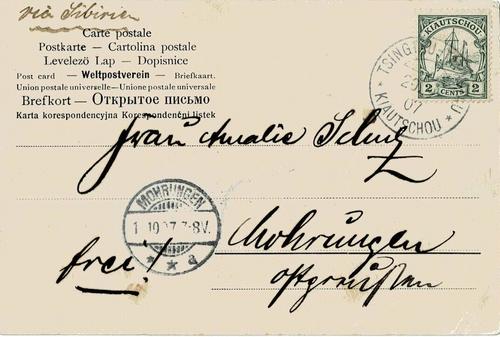 via Sibirien
Carte postale
Postkarte — Cartolina postale
Levelező Lap — Dopisnice
Post card — Weltpostverein — Briefkaart.
Union postale universelle — Unione postale universale
Brefkort — Открытое письмо
Karta korespondencyjna Korespondenční lístek
KIAUTSCHOU
2 CENTS 2
TSINGTAU
KIAUTSCHOU
07
Frau Amalie Schulz
MOHRUNGEN
1.10.07.7-8V.
* * a
Mohrungen
frei!
Ostpreußen